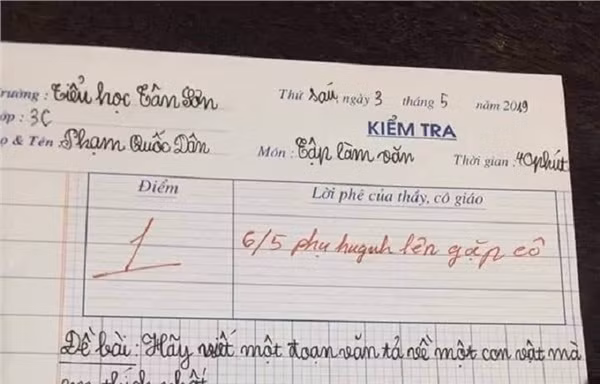 rường : Tiểu học Tân Sơn Thứ sáu, ngày 3 tháng 5 năm 2019
ớp : 3C KIỂM TRA
ọ & Tên : Phạm Quốc Dân Môn : Tập làm văn Thời gian : 40 phút
Điểm Lời phê của thầy, cô giáo
1 6/5 phụ huynh lên gặp cô
Đề bài: Hãy viết một đoạn văn tả về một con vật mà
em thích nhất